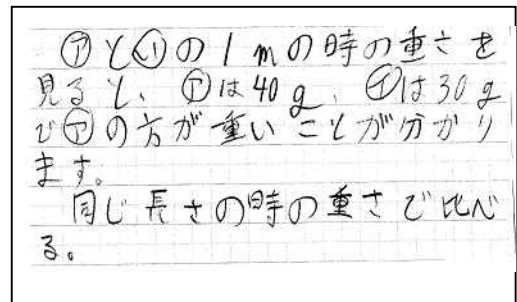 ㋐と㋑の1mの時の重さを
見ると、㋐は40g、㋑は30g
で㋐の方が重いことが分かり
ます。
同じ長さの時の重さで比べ
る。